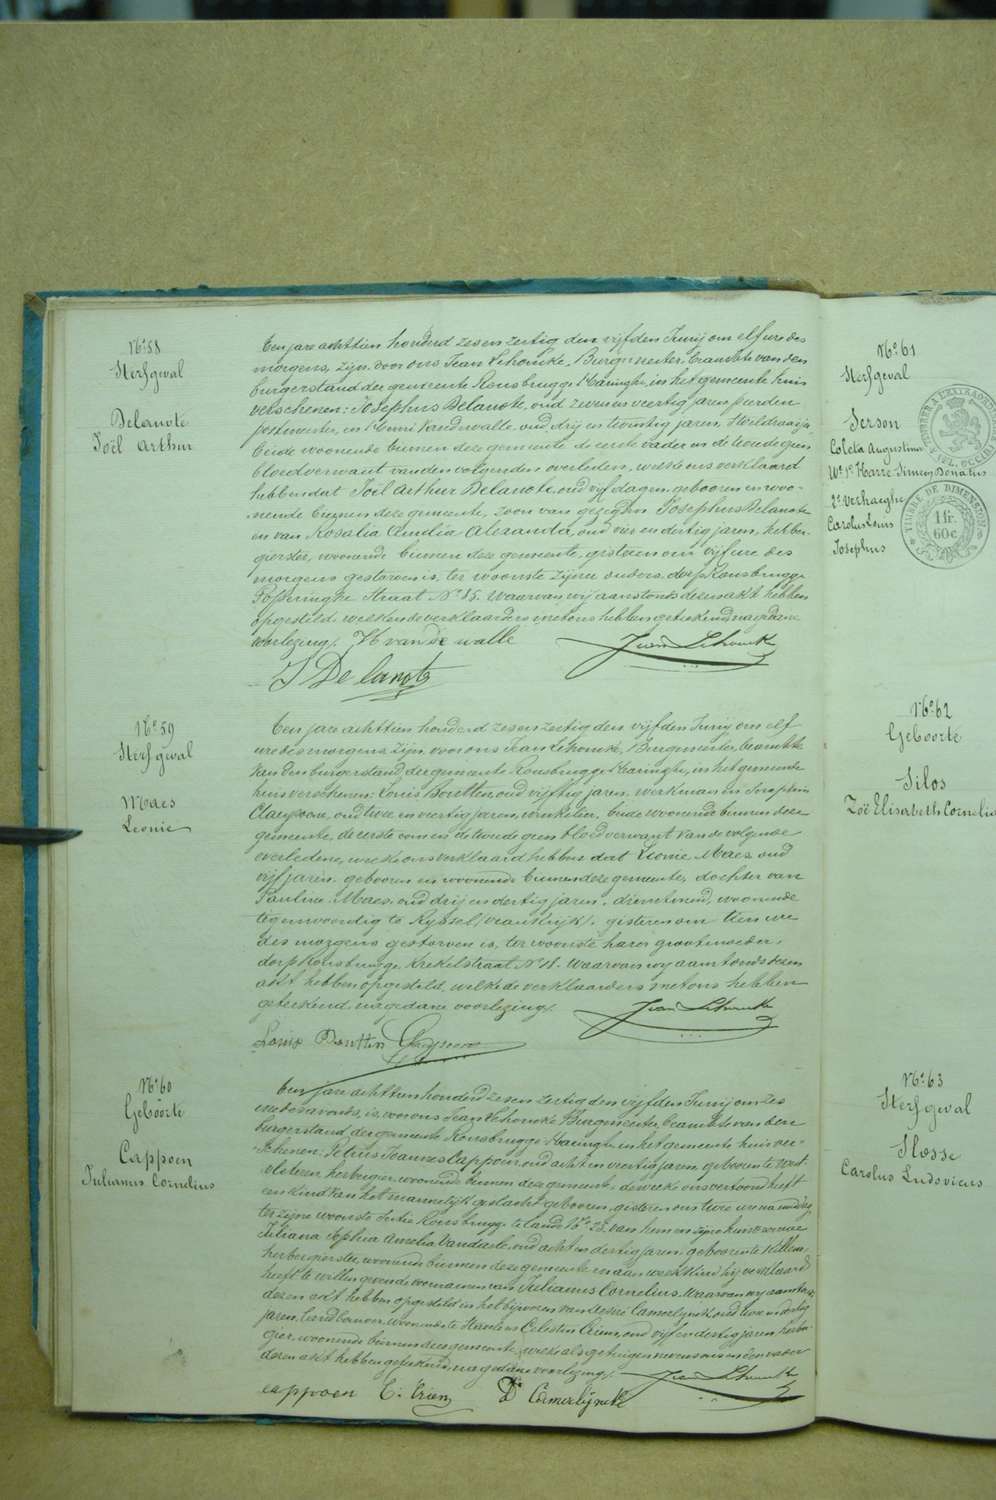 N° 58
Sterfgeval
Delanote
Joël Arthur
Een jare achttien honderd zes en zestig den vijfden Junij om elf ure des
morgens, zijn voor ons Jean Lehoucke, Burgmeester, Beambte van den
burgerstand der gemeente Rousbrugge-Haringhe, in het gemeente huis
verschenen: Josephus Delanote, oud zeven en veertig jaren, peerden
postmeester, en Henri Vandewalle, oud drij en twintig jaren,
beide woonende binnen deze gemeente, de eerste vader en de tweede geen
bloedverwant van den volgenden overleden, welke ons verklaard
hebben dat Joël Arthur Delanote, oud vijf dagen, gebooren en woo-
nende binnen deze gemeente, zoon van gezeghde Josephus Delanote
en van Rosalia Amelia Alexander, oud vier en dertig jaren, herber-
gierster, woonende binnen deze gemeente, gisteren om vijf ure des
morgens gestorven is, ter woonste zijner ouders, dorp Rousbrugge
Poperinghe Straat N° 15. Waarvan wij aanstonds dezen akt hebben
opgesteld, welken de verklaarders met ons hebben geteekend na gedane
voorlezing. H vandewalle Jean Lehoucke
J Delanote
N° 59
Sterfgeval
Maes
Leonie
Een jare achttien honderd zes en zestig den vijfden Junij om elf
ure des morgens, zijn voor ons Jean Lehoucke, Burgmeester, beambte
van den burgerstand, der gemeente Rousbrugge-Haringhe, in het gemeente
huis verschenen: Louis Boutten, oud vijftig jaren, werkman en Seraphin
Claeyssone, oud twee en veertig jaren, winkelier, beide woonende binnen deze
gemeente, de eerste oom en de tweede geen bloedverwant van de volgende
overledene, welke ons verklaard hebben dat Leonie Maes, oud
vijf jaren, gebooren en woonende binnen deze gemeente, dochter van
Pauline Maes, oud drij en dertig jaren, dienstmeid, woonende
tegenwoordig te Ryssel, (Vrankrijk), gisteren om tien ure
des morgens gestorven is, ter woonste harer grootmoeder,
dorp Rousbrugge, Krekelstraat N° 18. Waarvan wij aanstonds dezen
akt hebben opgesteld, welke de verklaarders met ons hebben
geteekend, na gedane voorlezing. Jean Lehoucke
Louis Boutten
N° 60
Geboorte
Cappoen
Julianus Cornelius
Een jare achttien honderd zes en zestig den vijfden Junij om zes
ure des avonds, is voor ons Jean Lehoucke Burgmeester, beambte van den
burgerstand, der gemeente Rousbrugge-Haringhe in het gemeente huis ver-
schenen: Petrus Joannes Cappoen, oud acht en veertig jaren, geboren te West-
vleteren, herbergier, woonende binnen deze gemeente, dewelke ons vertoond heeft
een kind van het mannelijk geslacht, geboren, gisteren om twee ure na middag
ter zijne woonste Sectie Rousbrugge te lande N° 23, van hem en zijne huisvrouw
Juliana Sophia Amelia Vandaele, oud acht en dertig jaren, geboren te Killem,
herbergierster, woonende binnen deze gemeente, en aan welk kind hij verklaard
heeft te willen geven de voornamen van Julianus Cornelius. Waarvan wij aanstonds
dezen akt hebben opgesteld in het bijwezen van Desiré Camerlynck, oud twee en dertig
jaren, landbouwer, woonende te Stavele en Celestin Crien, oud vijf en dertig jaren, herber-
gier, woonende binnen deze gemeente, welke als getuigen nevens ons en den vader
dezen akt hebben geteekend, na gedane voorlezing. Jean Lehoucke
cappoen C: Crien D Camerlijnck
N° 61
Sterfgeval
Serson
Coleta Augustina
We 1° Harre Simon Donatus
2° Verhaeghe
Carolus Louis
Josephus
TIMBRE A L'EXTRAORD
TIMBRE DE DIMENSION
1 fr.
60 c.
N° 62
Geboorte
Silos
Zoë Elisabeth Cornelia
N° 63
Sterfgeval
Flosse
Carolus Ludovicus